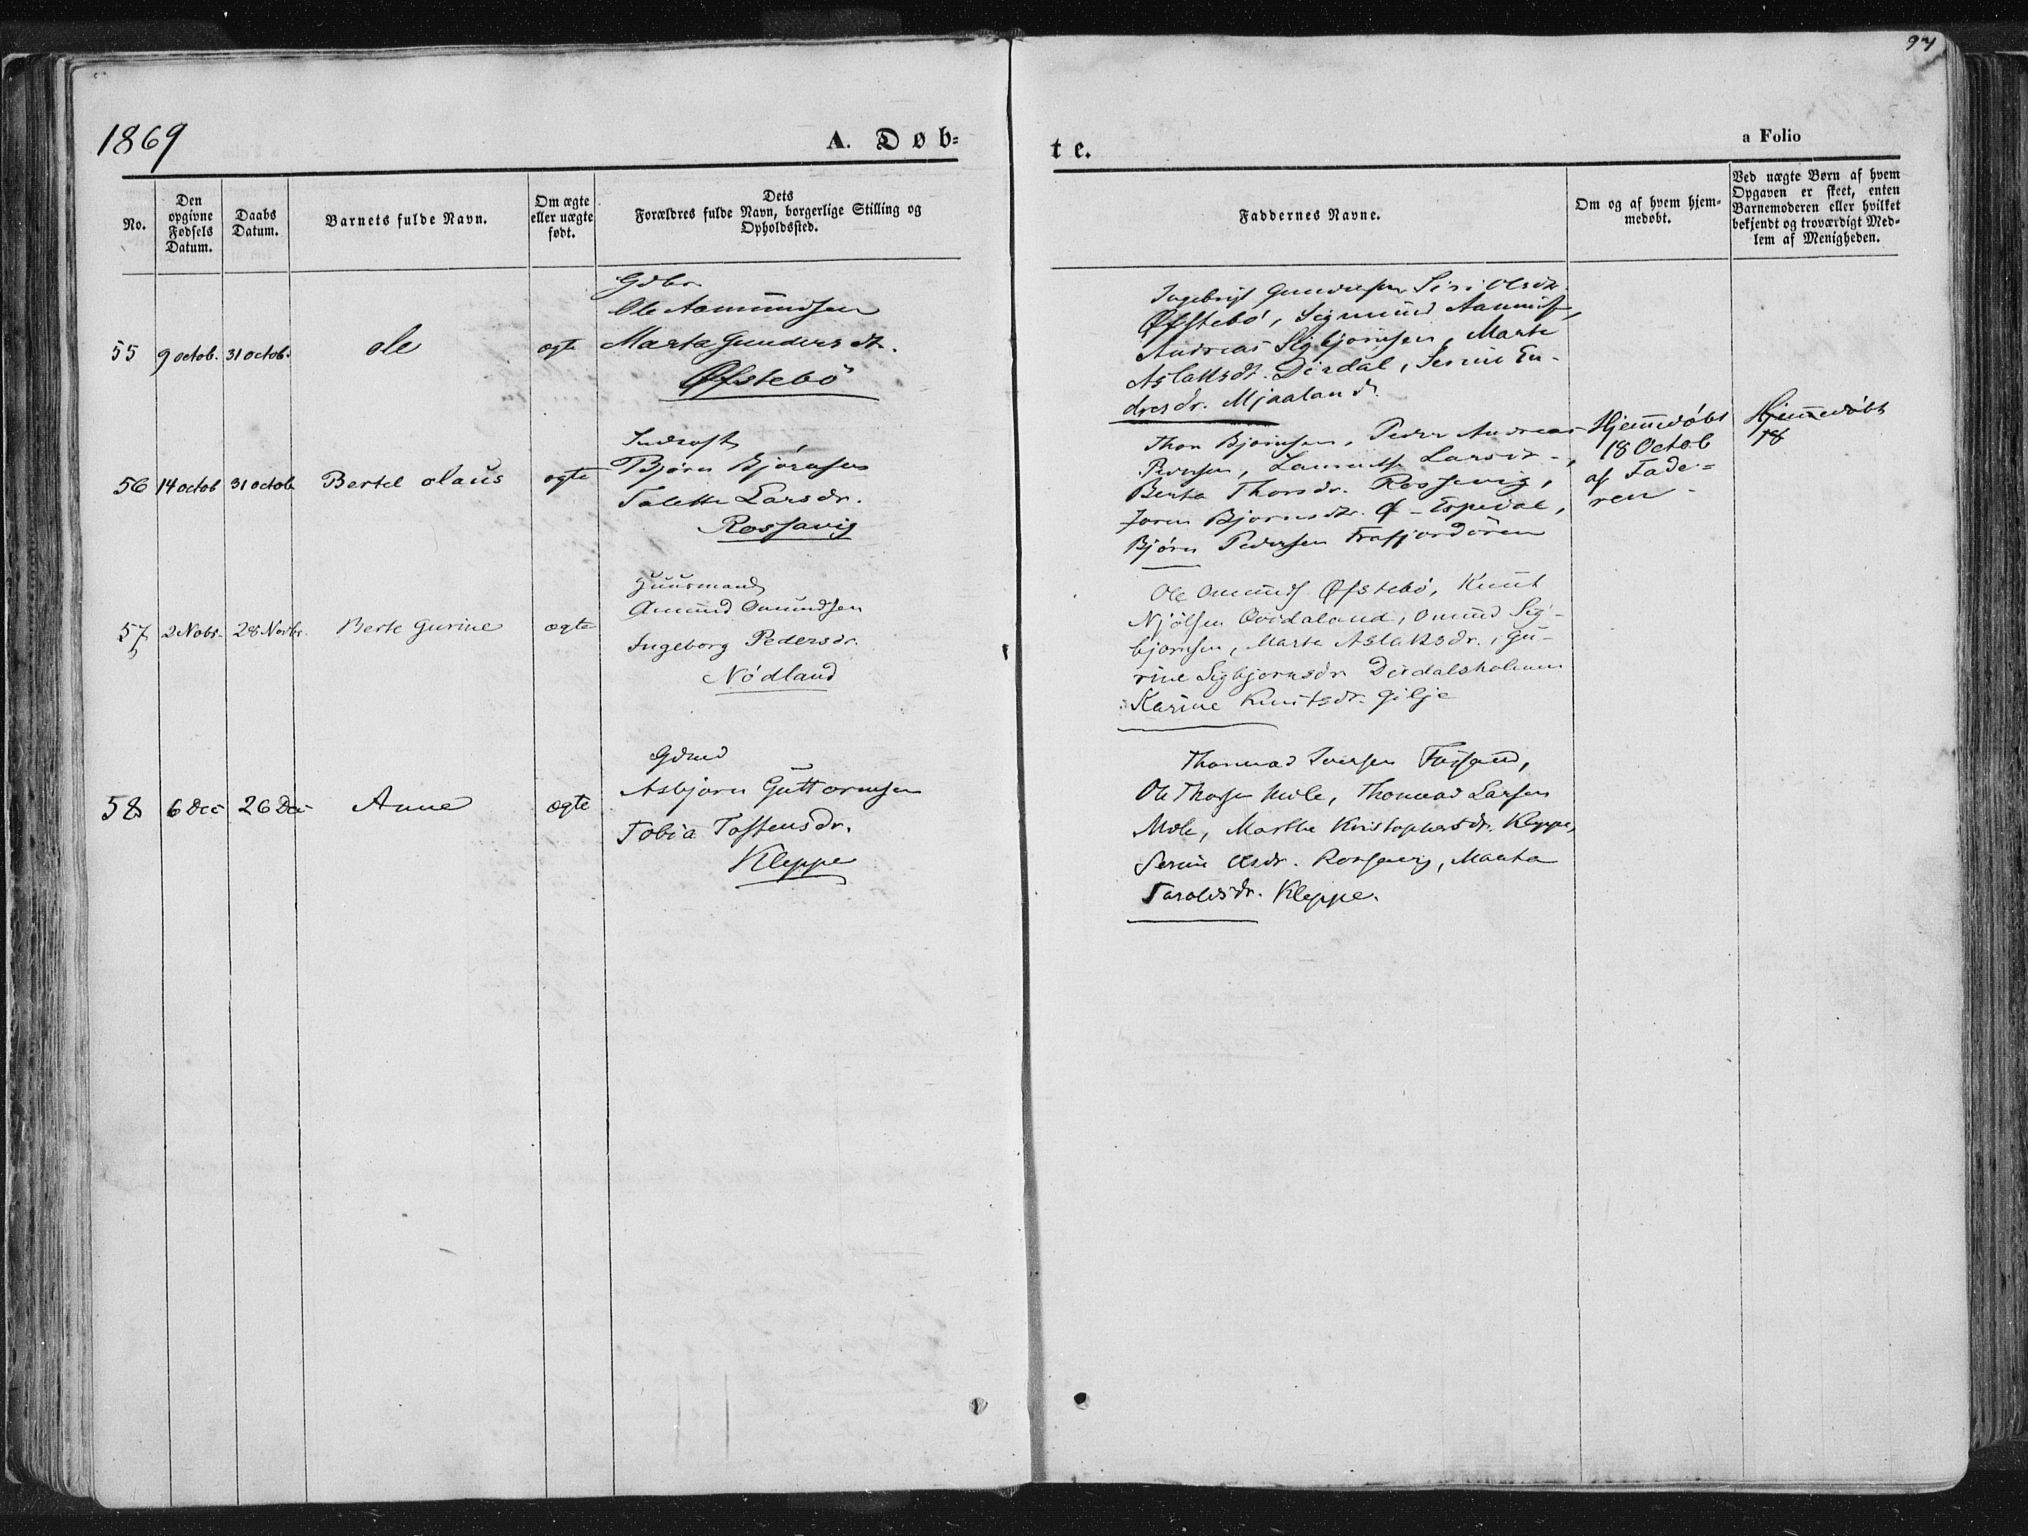 97
1869
A. Døb=
te.
a Folio
No.
Den
opgivne
Fødsels
Datum.
Daabs
Datum.
Barnets fulde Navn.
Om ægte
eller uægte
født.
Dets
Forældres fulde Navn, borgerlige Stilling og
Opholdssted.
Faddernes Navne.
Om og af hvem hjem-
medøbt.
Ved uægte Børn af hvem
Opgaven er skeet, enten
Barnemoderen eller hvilket
bekjendt og troværdigt Med-
lem af Menigheden.
55
9 octob.
31 octob.
Ole
ægte
Gdbr
Ole Aamundsen
Marta Gundersdt.
Øfstebö
Ingebrigt Siri Olsdtr.
Øfstebö, Sigmund
Andreas Sigbjørnsen, Marte
Aslaksdt. Dirdal, Serine En-
dresdr. Mjaaland
56
14 octob
31 octob
Bertel olaus
ægte
Inderst
Bjørn Bjørnsen
Talette Larsdr.
Rossavig
Thor Bjørnsen, Peder Andreas
Pedersen,
Berta Thorsdr. Rossavig,
Bjørnsdtr. Ø-Espedal,
Bjørn Pedersen Frafjordøren
Hjemedøbt
18 Octob
af Fade=
ren
Hjemedøbt
18
57
2 Nobr.
28 Novbr.
Berte Gurine
ægte
Huusmand
Amund Omundsen
Ingeborg Pedersdr.
Nødland
Ole Omunds Øfstebö, Knut
Njölsen Qvidaland, Omund Sig-
bjørnsen, Marta Aslaksdr., Gu-
rine Sigbjørnsdr Dirdalsholmen
Karine Knutsdr. Gilje
58
6 Dec
26 Dec
Anne
ægte
Gdmd
Asbjørn Guttormsen
Tobia Tostensdr.
Kleppe
Thormod Iversen Fossand,
Ole Thorsen Mele, Thormod Larsen
Mele, Marthe Kristophersdr. Kleppe,
Serine Olsdr. Rossavig, Marta
Taroldsdr. Kleppe.